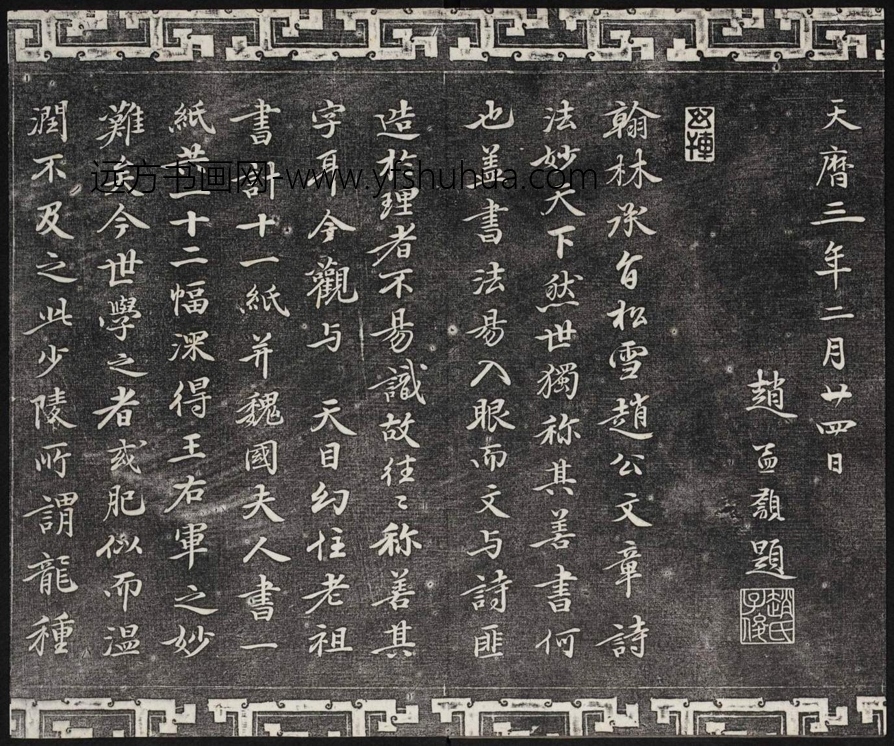 天曆三年二月廿四日
趙孟籲題
趙氏子俊
翰林承旨松雪趙公文章詩
法妙天下然世獨称其善書何
也盖書法易入眼而文与詩匪
造於理者不易識故往〻称善其
字耳今觀与 天目幻住老祖
書計十一紙并魏國夫人書一
紙共一十二幅深得王右軍之妙
難矣今世學之者或肥似而温
潤不及之此少陵所謂龍種
远方书画网 www.yfshuhua.com